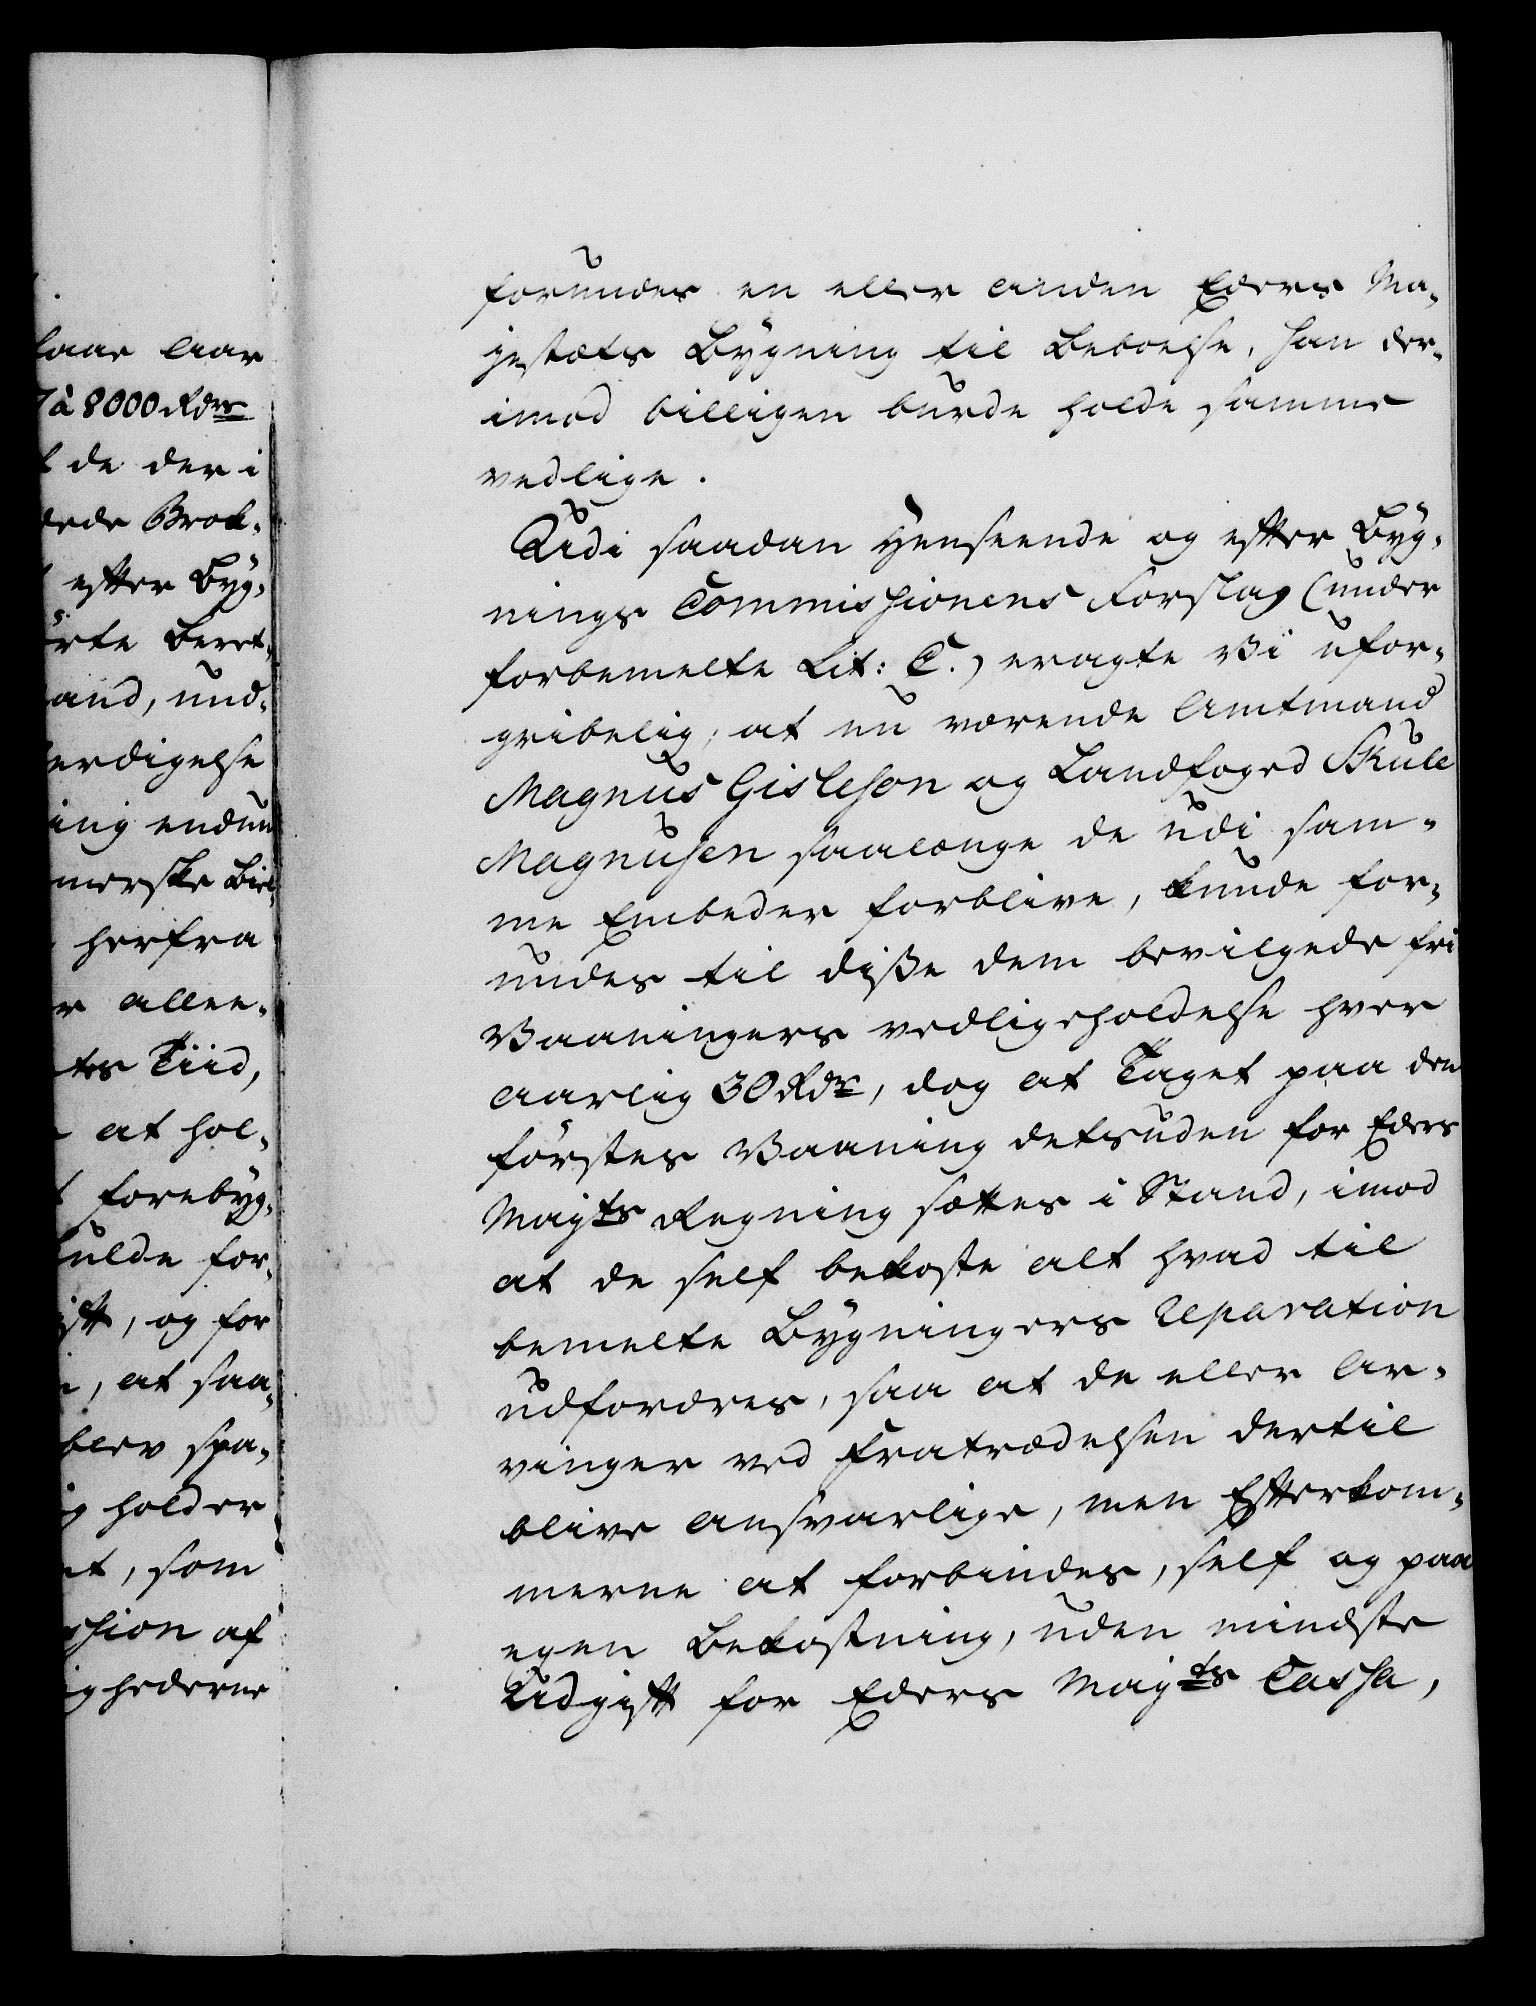 laar Aar
7 à 8000 Rdr
de der i
Brok-
efter Byg-
rte beret-
and, und-
erdigelse
ing endnu
merske Biel-
herfra
allee-
tes Tiid,
at hol-
forebyg-
ulde for-
ift, og for
, at saa-
blev spa-
holder
et, som
ssion af
ighederne
forundes en eller anden Eders Ma-
jestæts Bygning til Beboelse, han der-
imod billigen burde holde samme
vedlige.
Udi saadan Henseende og efter Byg-
nings Commissionens Forslag (under
forbemelte Lit: C.) eragte Vi ufor-
gribelig, at nu værende Amtmand
Magnus Gisleson og Landfoged Skule
Magnusen saalænge de udi sam-
me Embeder forblive, kunde for-
undes til disse dem bevilgede fri
Vaaningers vedligeholdelse hver
aarlig 30 Rdr, dog at Taget paa den
förstes Vaaning desuden for Eders
Majts Regning sættes i Stand, imod
at de self bekoste alt hvad til
bemelte Bygningers Reparation
udfordres, saa at de eller Ar-
vinger ved Fratrædelsen dertil
blive ansvarlige, men Efterkom-
merne at forbindes, self og paa
egen Bekostning, uden mindste
Udgift for Eders Majts Cassa,